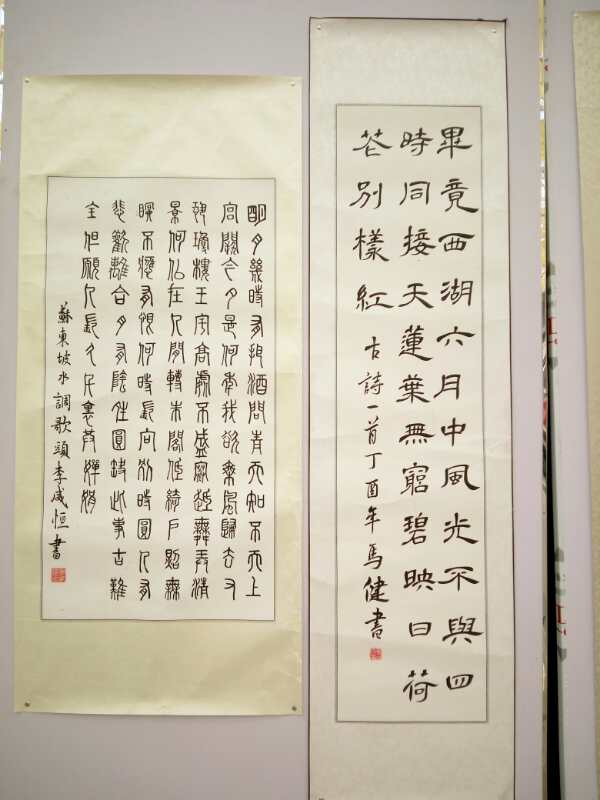 畢竟西湖六月中風光不與四
時同接天蓮葉無窮碧映日荷
花別樣紅
古詩一首丁酉年馬健書
明月幾時有把酒問青天知不天上
宮闕今夕是何年我欲乘風歸去又
恐瓊樓玉宇高處不勝寒起舞弄清
影何似在人間轉朱閣低綺戶照無
眠不應有恨何時長向別時圓人有
悲歡離合月有陰晴圓缺此事古難
全但願人長久千里共嬋娟
蘇東坡水調歌頭李恒書